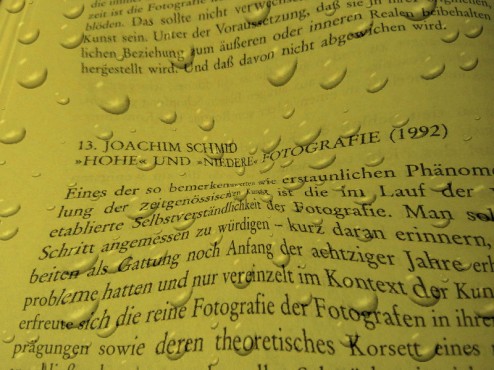 zeit ist die Fotografie
blöden. Das sollte nicht
Kunst sein. Unter der Voraussetzung, daß sie in ihrer
lichen Beziehung zum äußeren oder inneren Realen beibehalten
hergestellt wird. Und daß davon nicht abgewichen wird.
13. JOACHIM SCHMID
»HOHE« UND »NIEDERE« FOTOGRAFIE (1992)
Eines der so bemerkenswerten wie erstaunlichen Phänome
lung der zeitgenössischen Kunst ist die im Lauf der
etablierte Selbstverständlichkeit der Fotografie. Man sol
Schritt angemessen zu würdigen – kurz daran erinnern,
beiten als Gattung noch Anfang der achtziger Jahre erh
probleme hatten und nur vereinzelt im Kontext der Kun
erfreute sich die reine Fotografie der Fotografen in ihren
prägungen sowie deren theoretisches Korsett eines